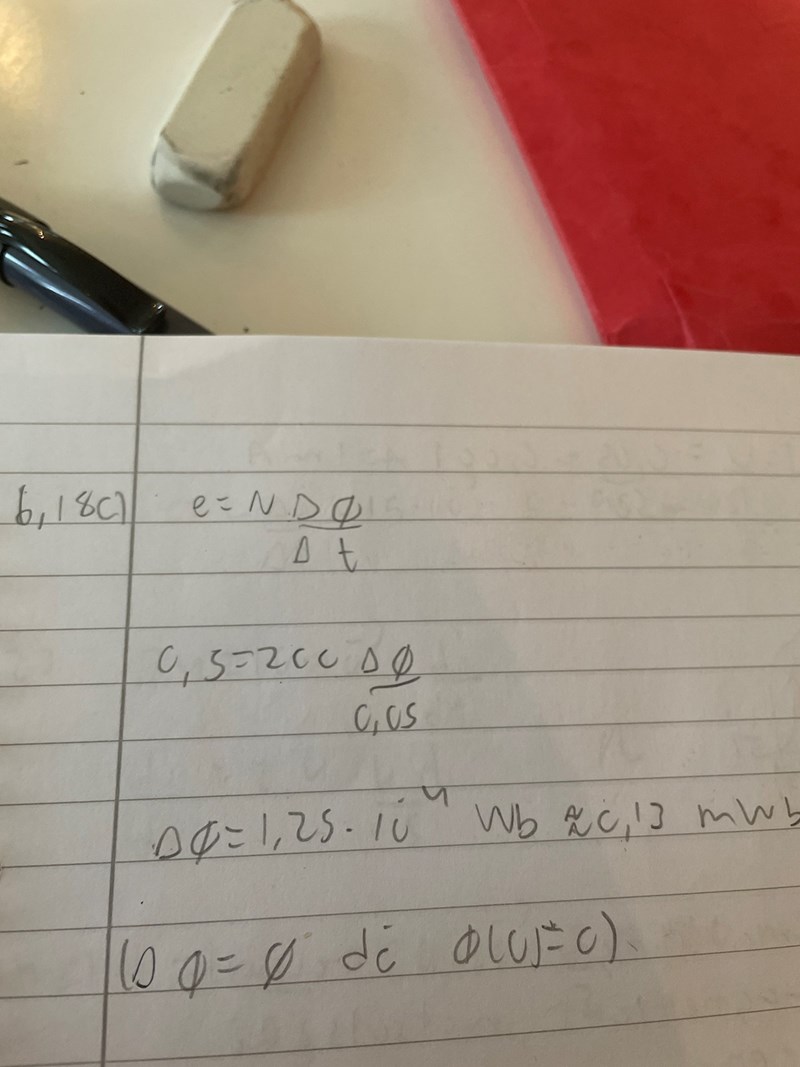 6,18c) e = N ΔΦ
Δt
0,5 = 200 ΔΦ
0,05
ΔΦ = 1,25 · 10⁻⁴ Wb ≈ 0,13 mWb
(ΔΦ = Φ då Φ(0) = 0).